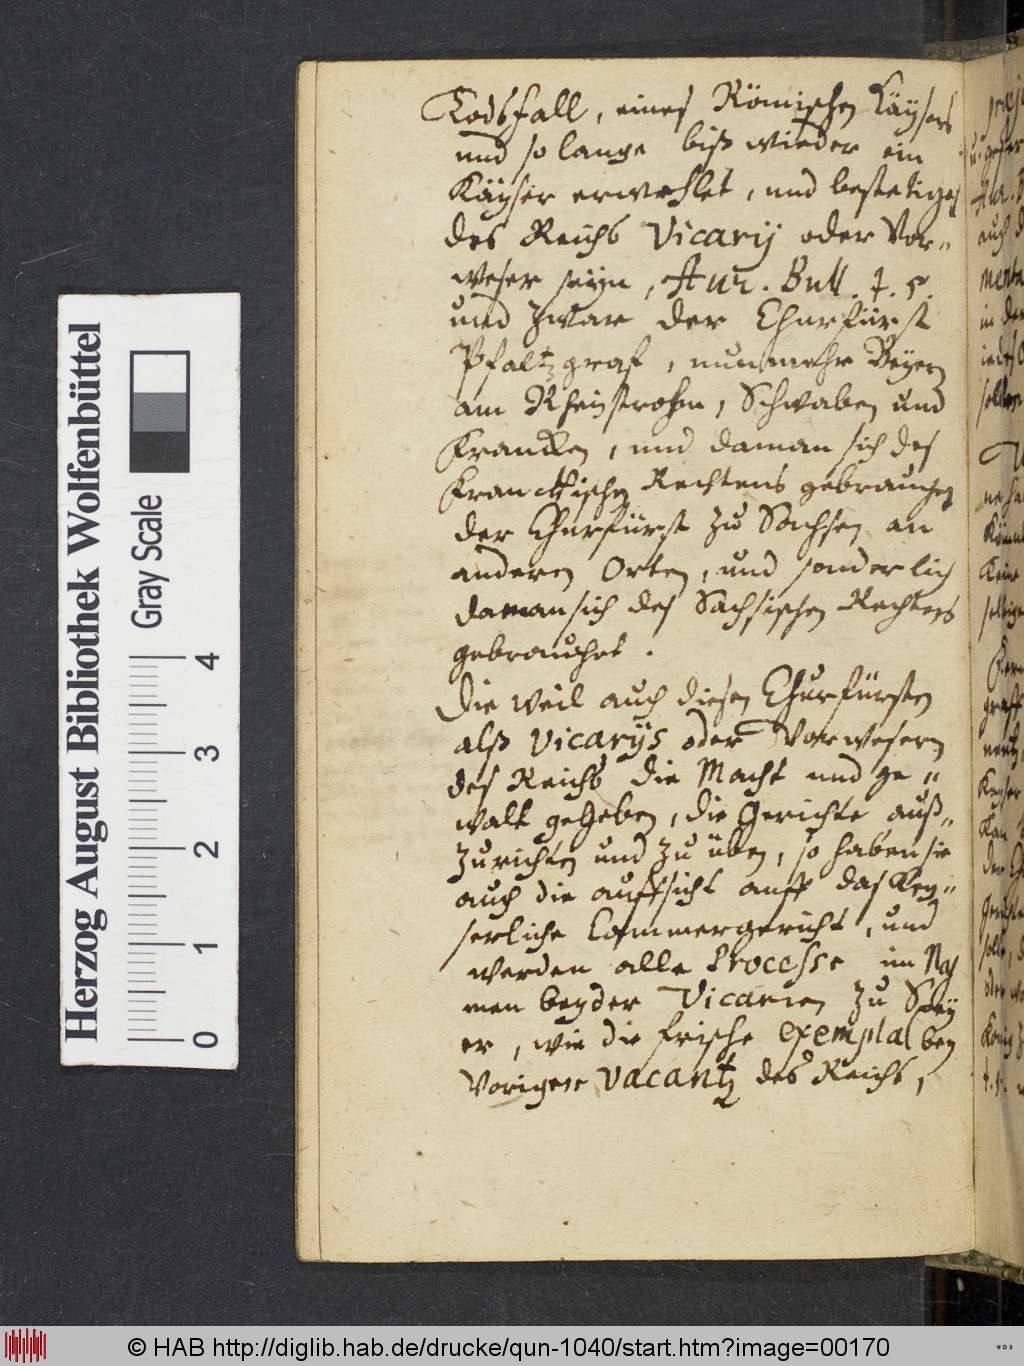 Todsfall, eines Römischen Käysers
und so lange biß wieder ein
Käyser erwehlet, und bestetiget
des Reichs Vicarij oder Vor„
weser seyn, Aur. Bull. t. 5.
und zwar der Churfürst
Pfaltzgraf, nunmehr Beyern
am Rheinstrohm, Schwaben und
Francken, und daman sich des
Franckischen Rechtens gebrauchet
der Churfürst zu Sachsen an
anderen Orten, und sonderlich
daman sich des Sächsischen Rechtens
gebrauchet.
Die weil auch diesen Churfürsten
alß Vicarijs oder Vorwesern
des Reichs die Macht und ge„
walt gegeben, die Gerichte auß„
zurichten und zu üben, so haben sie
auch die auffsicht auff das Key„
serliche Cammergericht, und
werden alle Processe im Na
men beyder Vicarien zu Spey
er, wie die frische exempla bey
Voriger vacantz des Reichs,
Herzog August Bibliothek Wolfenbüttel
Gray Scale
0 1 2 3 4
© HAB http://diglib.hab.de/drucke/qun-1040/start.htm?image=00170